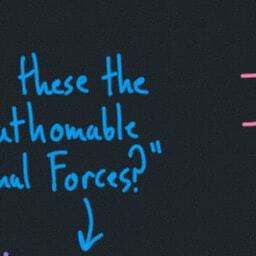 these the
uthomable
nal Forces?"